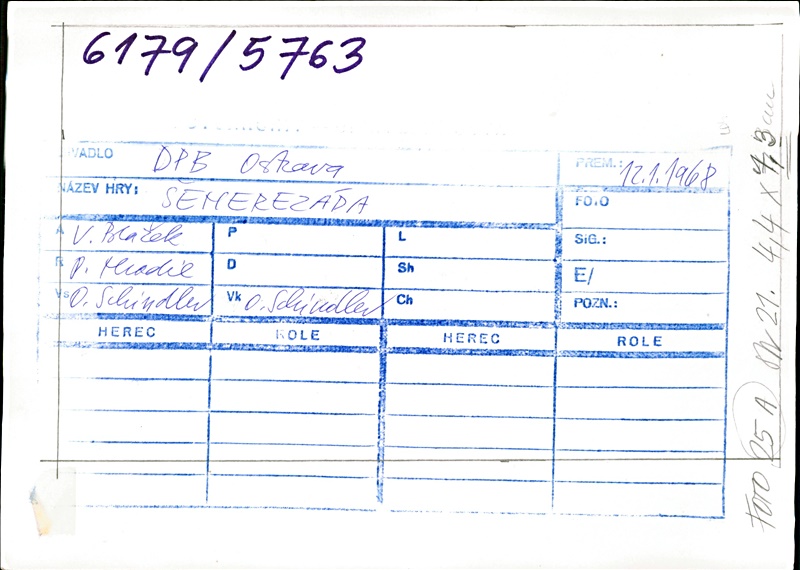 6179/5763
VADLO DPB Ostrava PREM.: 12.1.1968
NÁZEV HRY: ŠEHEREZÁDA FOTO
A V. Blažek P L SIG.:
R P. D Sh E/
Vs O. Schindler Vk O. Schindler Ch POZN.:
HEREC ROLE HEREC ROLE
FOTO 25 A 21. 4,4 X 7,3 cm